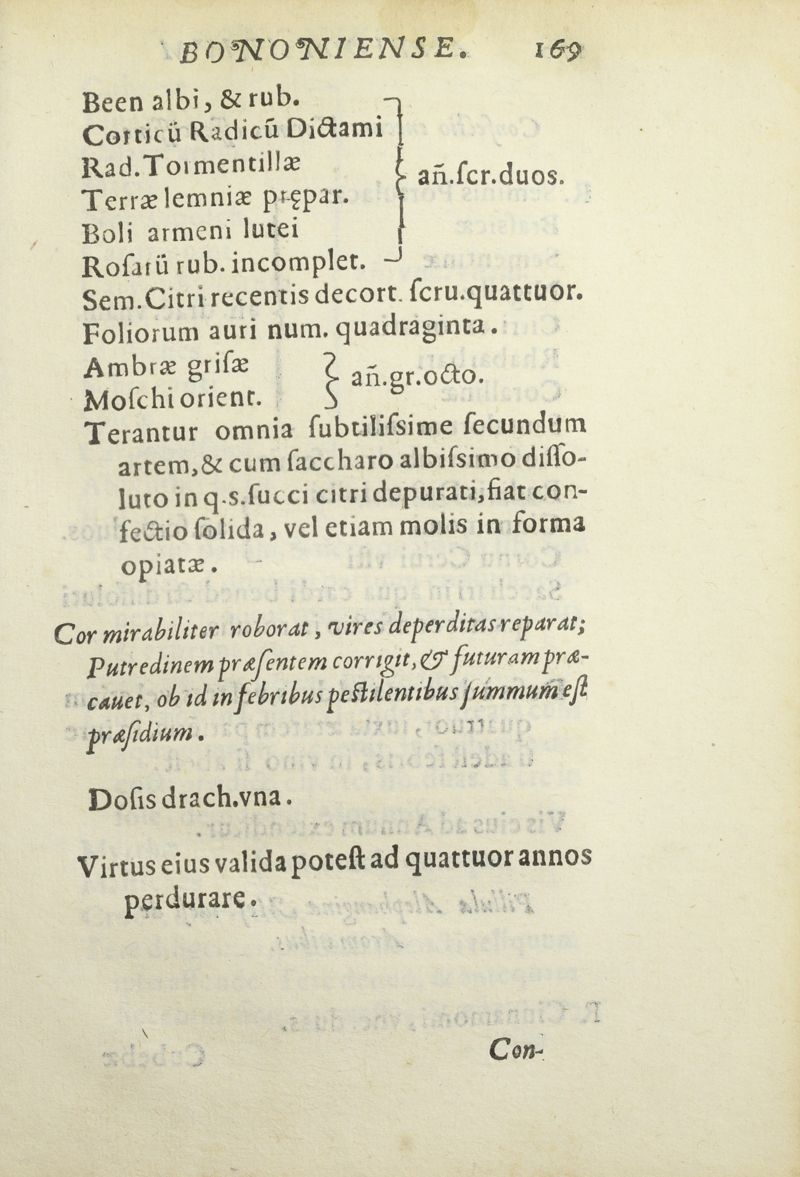 BONONIENSE. 169
Been albi, & rub.
Corticū Radicū Dictami
Rad. Tormentillæ
Terræ lemniæ prępar.
Boli armeni lutei
Roſarū rub. incomplet.
añ.ſcr.duos.
Sem. Citri recentis decort. ſcru.quattuor.
Foliorum auri num. quadraginta.
Ambræ griſæ
Moſchi orient.
añ.gr.octo.
Terantur omnia ſubtiliſsime ſecundum
artem, & cum ſaccharo albiſsimo diſſo-
luto in q.s. ſucci citri depurati, fiat con-
fectio ſolida, vel etiam molis in forma
opiatæ.
Cor mirabiliter roborat, vires deperditas reparat;
Putredinem præſentem corrigit, & futuram præ-
cauet, ob id in febribus peſtilentibus ſummum eſt
præſidium.
Doſis drach.vna.
Virtus eius valida poteſt ad quattuor annos
perdurare.
Con-